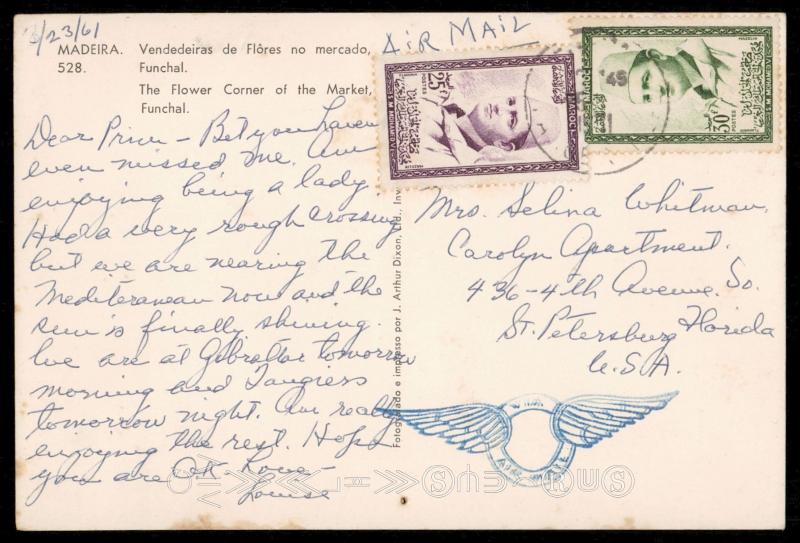 3/23/61
MADEIRA. Vendedeiras de Flôres no mercado,
528. Funchal.
The Flower Corner of the Market,
Funchal.
AIR MAIL
Dear Prim - Bet you haven
even missed me. Am
enjoying being a lady
Had a very rough crossing
but we are nearing the
Mediteranean now and the
sun is finally shining.
We are at Gibraltar tomorrow
morning and Tangiers
tomorrow night. Am really
enjoying the rest. Hope
you are O.K. - Love -
Louise
Fotografado e impresso por J. Arthur Dixon, Ltd., Inv
25
POSTES
MAROC
S.M. MOHAMMED V
MAZELIN
50
POSTES
MAROC
S.M. MOHAMMED V
MAZELIN
45
Mrs. Selina Whitman.
Carolyn Apartment.
436-4th Avenue. So.
St. Petersburg Florida
U.S.A.